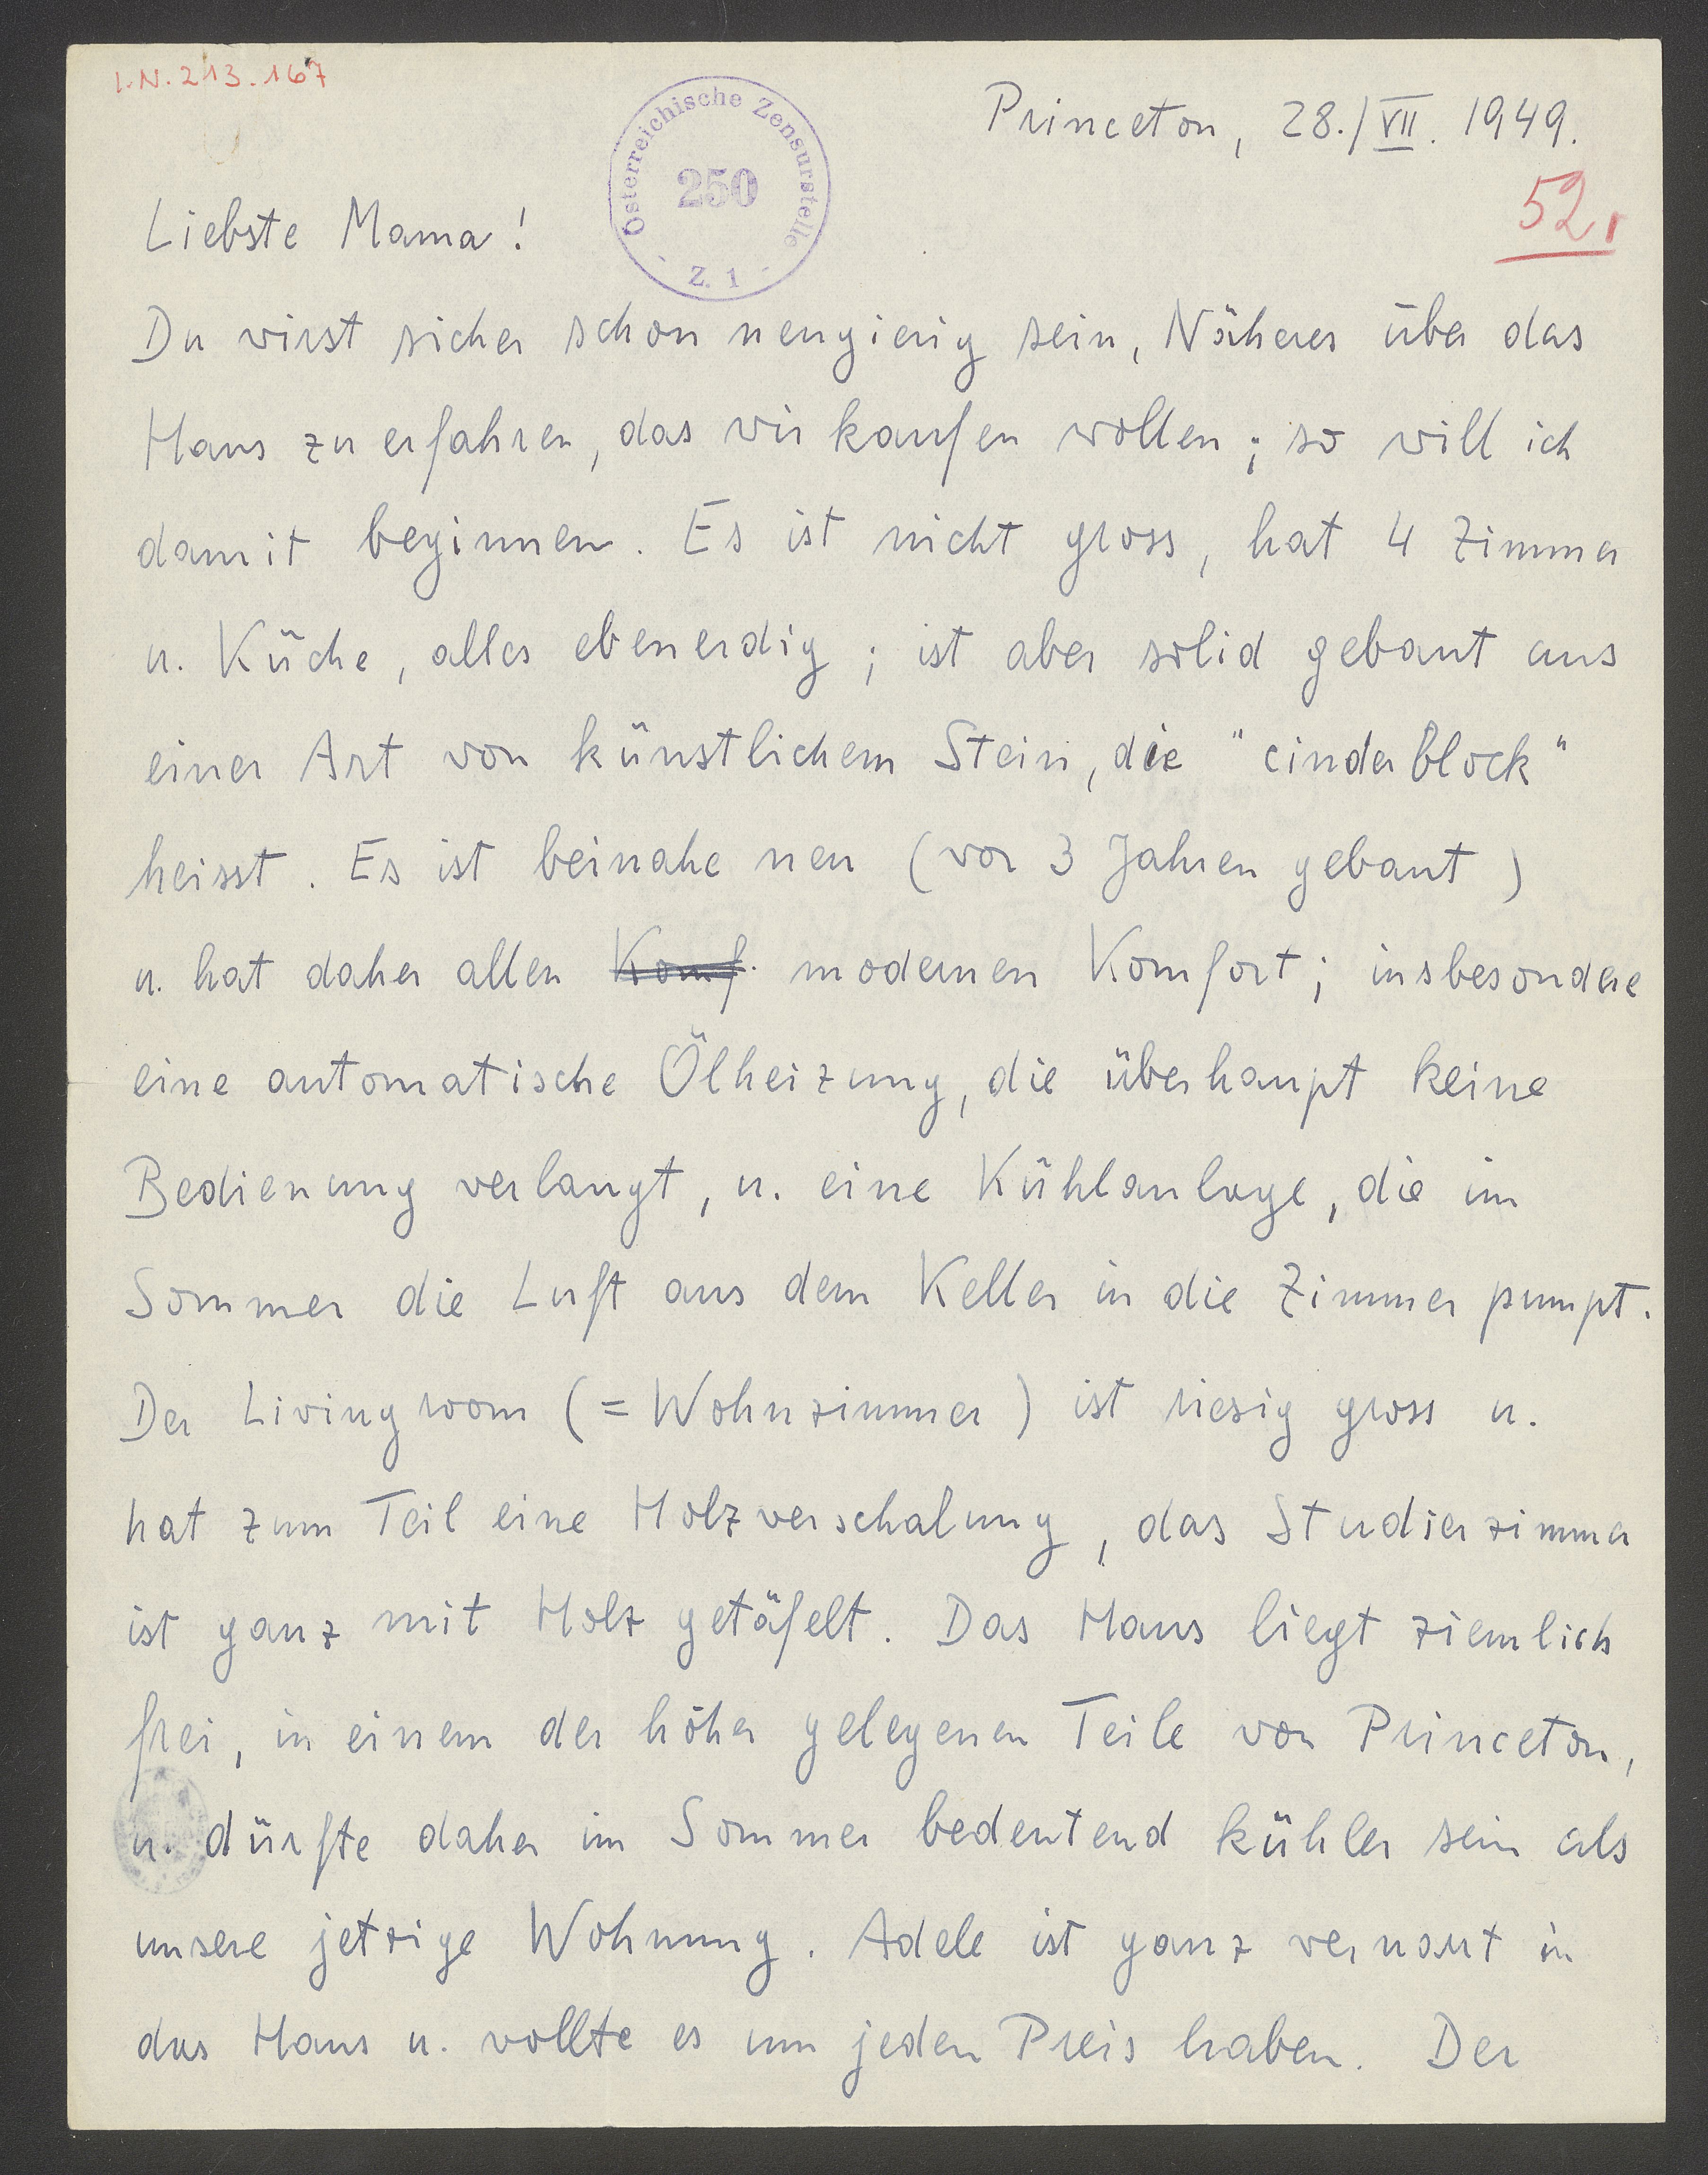 I.N. 213.167
Österreichische Zensurstelle
250
Z. 1
Princeton, 28./VII. 1949.
52.
Liebste Mama!
Du wirst sicher schon neugierig sein, Näheres über das
Haus zu erfahren, das wir kaufen wollen; so will ich
damit beginnen. Es ist nicht gross, hat 4 Zimmer
u. Küche, alles ebenerdig; ist aber solid gebaut aus
einer Art von künstlichem Stein, die "cinderblock"
heisst. Es ist beinahe neu (vor 3 Jahren gebaut)
u. hat daher allen Komf. modernen Komfort; insbesondere
eine automatische Ölheizung, die überhaupt keine
Bedienung verlangt, u. eine Kühlanlage, die im
Sommer die Luft aus dem Keller in die Zimmer pumpt.
Der Livingroom (= Wohnzimmer) ist riesig gross u.
hat zum Teil eine Holzverschalung, das Studierzimmer
ist ganz mit Holz getäfelt. Das Haus liegt ziemlich
frei, in einem der höher gelegenen Teile von Princeton,
u. dürfte daher im Sommer bedeutend kühler sein als
unsere jetzige Wohnung. Adele ist ganz vernarrt in
das Haus u. wollte es um jeden Preis haben. Der